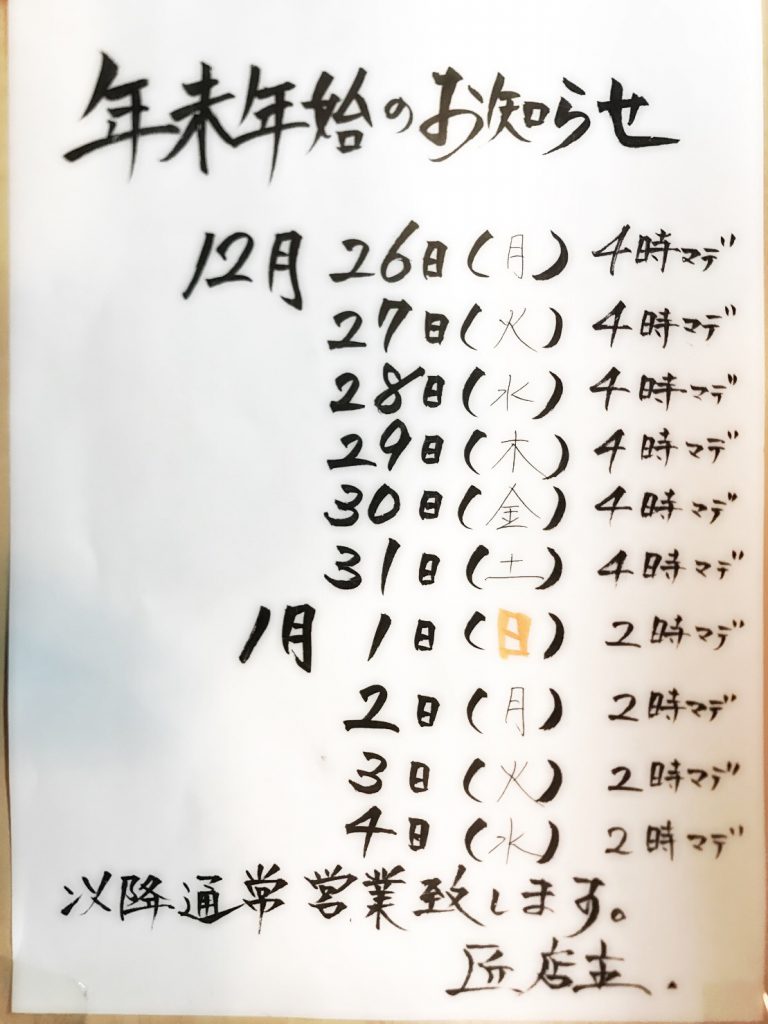 年末年始のお知らせ
12月 26日(月) 4時マデ
27日(火) 4時マデ
28日(水) 4時マデ
29日(木) 4時マデ
30日(金) 4時マデ
31日(土) 4時マデ
1月 1日(日) 2時マデ
2日(月) 2時マデ
3日(火) 2時マデ
4日(水) 2時マデ
以降通常営業致します。
匠店主.